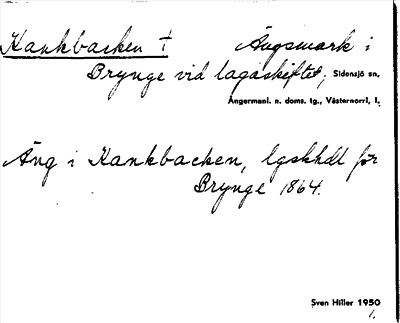 Kankbacken † Ängsmark i
Brynge vid lagaskiftet; Sidensjö sn.
Ångermanl. n. doms. tg., Västernorrl, l.
Äng i Kankbacken, lgskhdl för
Brynge 1864.
Sven Hiller 1950
1.